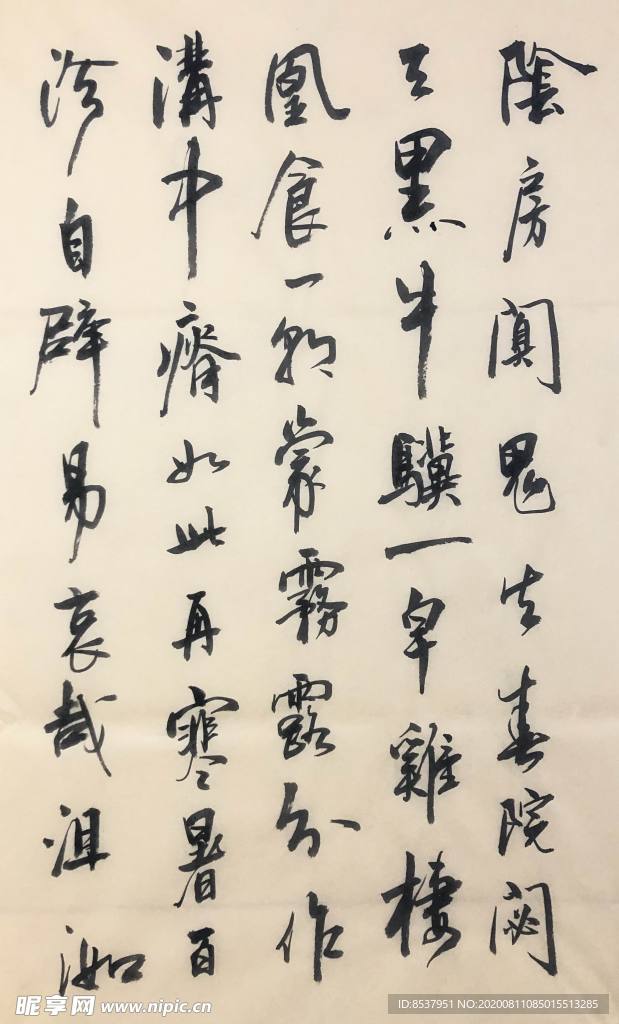 陰房闃鬼火春院閟
天黑牛驥一皁雞棲
凰食一朝蒙霧露分作
溝中瘠如此再寒暑百
沴自辟易哀哉沮洳
昵享网 www.nipic.cn
ID:8537951 NO:20200811085015513285